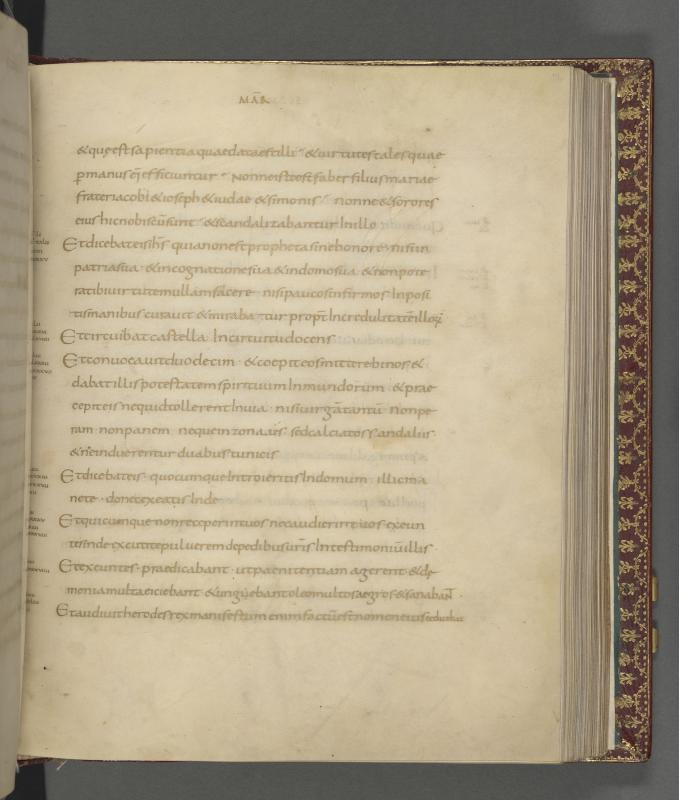 MAR̄
& quę est sapientia quae data est illi · & uirtutes tales quae
p manus ei̅ efficiuntur · Nonne iste est faber filius mariae
frater iacobi & ioseph & iudae & simonis · nonne & sorores
eius hic nobiscu̅ sunt · & scandalizabantur In illo
Et dicebat eis ih̅s quia non est propheta sine honore · nisi in
patria sua · & in cognatione sua & in domo sua · & non pote
rat ibi uirtutem ullam facere · nisi paucos infirmos Inposi
tis manibus curauit & mirabatur propt̅ Incredulitate̅ illoꝝ
Et circuibat castella In circuitu docens
Et conuocauit duodecim · & coepit eos mittere binos · &
dabat illis potestatem spirituum Inmundorum · & prae
cepit eis ne quid tollerent In uia · nisi uirga̅ tantu̅ · Non pe
ram · non panem · neque in zona aes · sed calciatos sandaliis
& ne induerentur duabus tunicis
Et dicebat eis · quocumque Introieritis In domum · illic ma
nete · donec exeatis Inde
Et quicumque non receperint uos nec audierint uos · exeun
tes inde excutite puluerem de pedibus uris̅ In testimoniu̅ illis ·
Et exeuntes · praedicabant · ut paenitentiam agerent · & dę
monia multa eiciebant · & unguebant oleo multos aegros · & sanaban̅
Et audiuit herodes rex manifestum enim factu̅ est nomen eius &dicebat